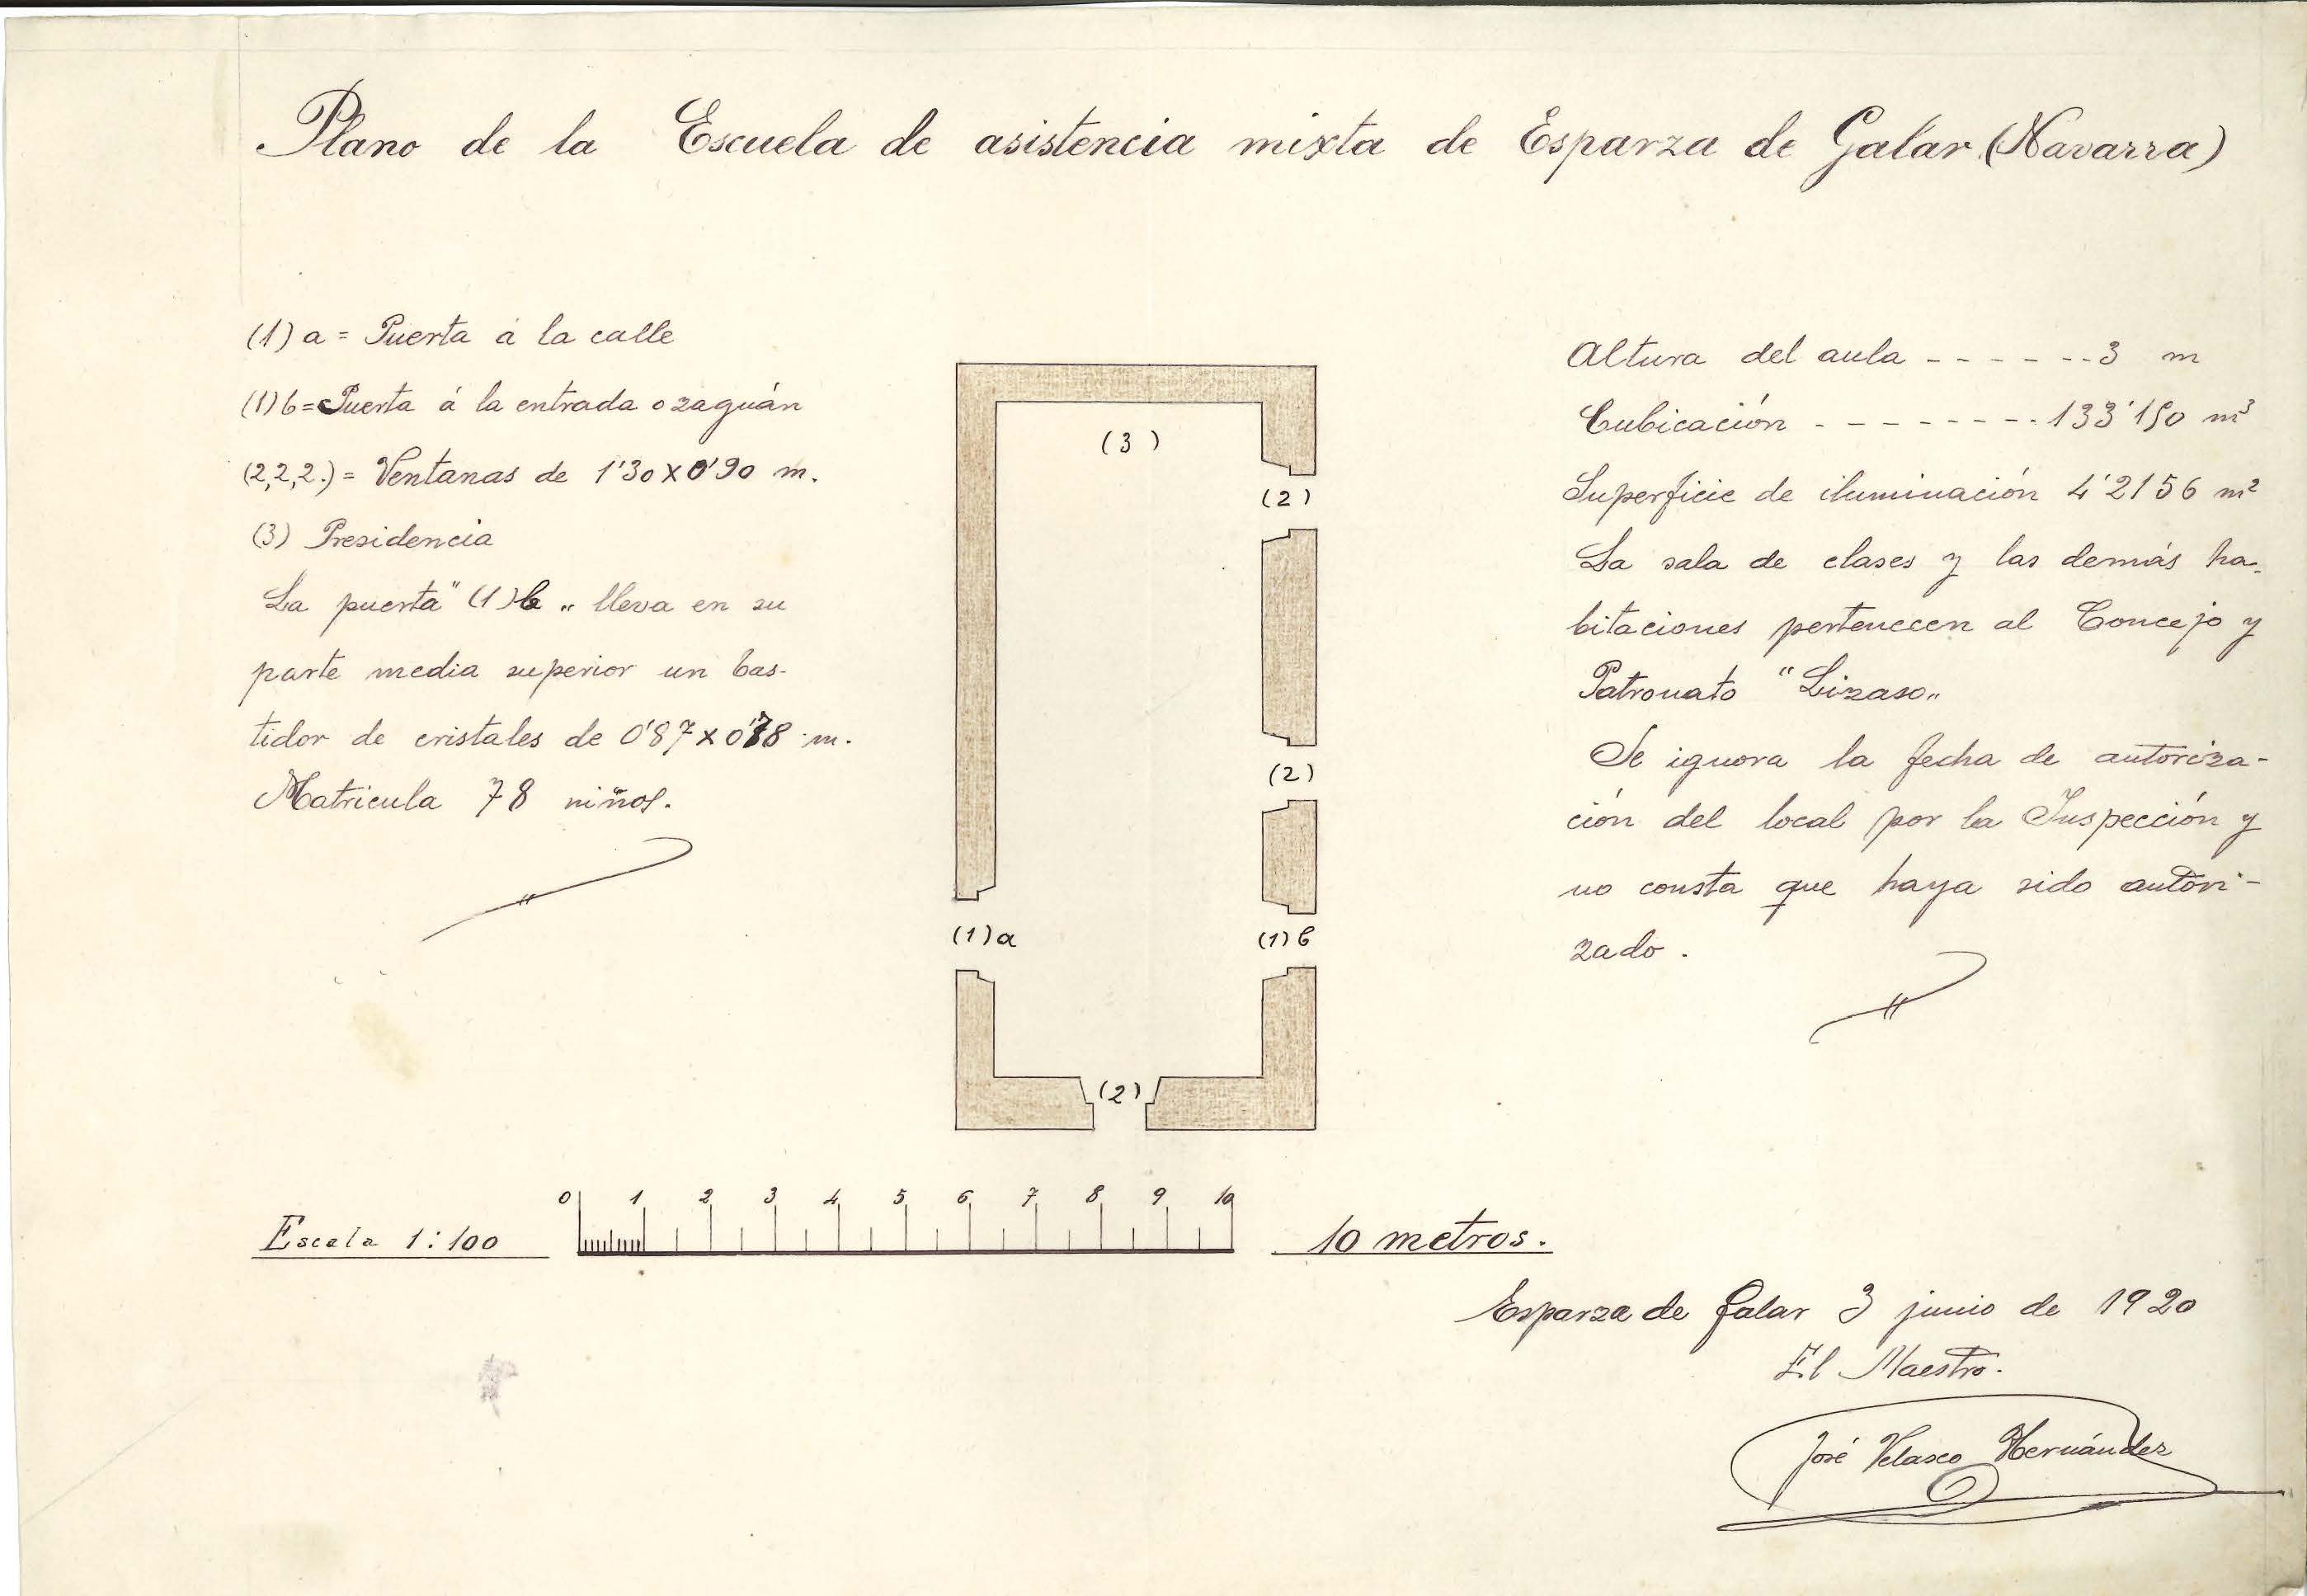 Plano de la Escuela de asistencia mixta de Esparza de Galar (Navarra)
(1) a = Puerta á la calle
(1) b = Puerta á la entrada o zaguán
(2,2,2.) = Ventanas de 1'30 x 0'90 m.
(3) Presidencia
La puerta "(1) b„ lleva en su
parte media superior un bas-
tidor de cristales de 0'87 x 0'78 m.
Matricula 78 niños.
(3)
(2)
(2)
(1) a
(1) b
(2)
Altura del aula ------ 3 m
Cubicación -------- 133'150 m³
Superficie de iluminación 4'2156 m²
La sala de clases y las demás ha-
bitaciones pertenecen al Concejo y
Patronato "Lizaso„
Se ignora la fecha de autoriza-
ción del local por la Inspección y
no consta que haya sido autori-
zado.
0 1 2 3 4 5 6 7 8 9 10
Escala 1:100
10 metros.
Esparza de Galar 3 junio de 1920
El Maestro.
José Velasco Hernández